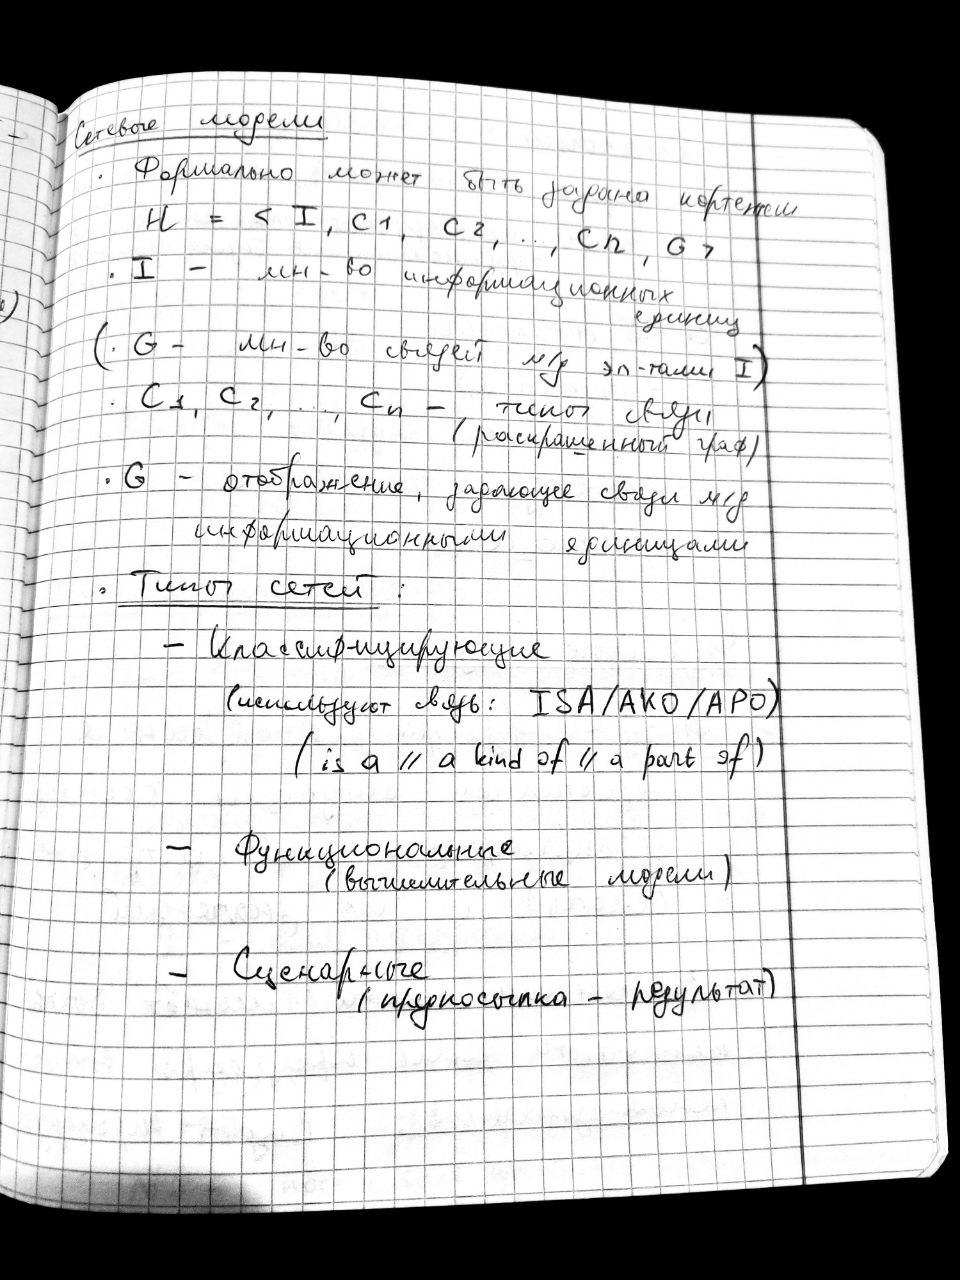 Сетевые модели
· Формально может быть задана кортежем
H = < I, C1, C2, ..., Cn, G >
· I - мн-во информационных
единиц
(· G - мн-во связей м/д эл-тами I)
· C1, C2, ..., Cn - типы связи
(раскрашенный граф)
· G - отображение, задающее связи м/д
информационными единицами
· Типы сетей :
- Классифицирующие
(используют связь: ISA/AKO/APO)
( is a // a kind of // a part of )
- Функциональные
(вычислительные модели)
- Сценарные
(предпосылка - результат)